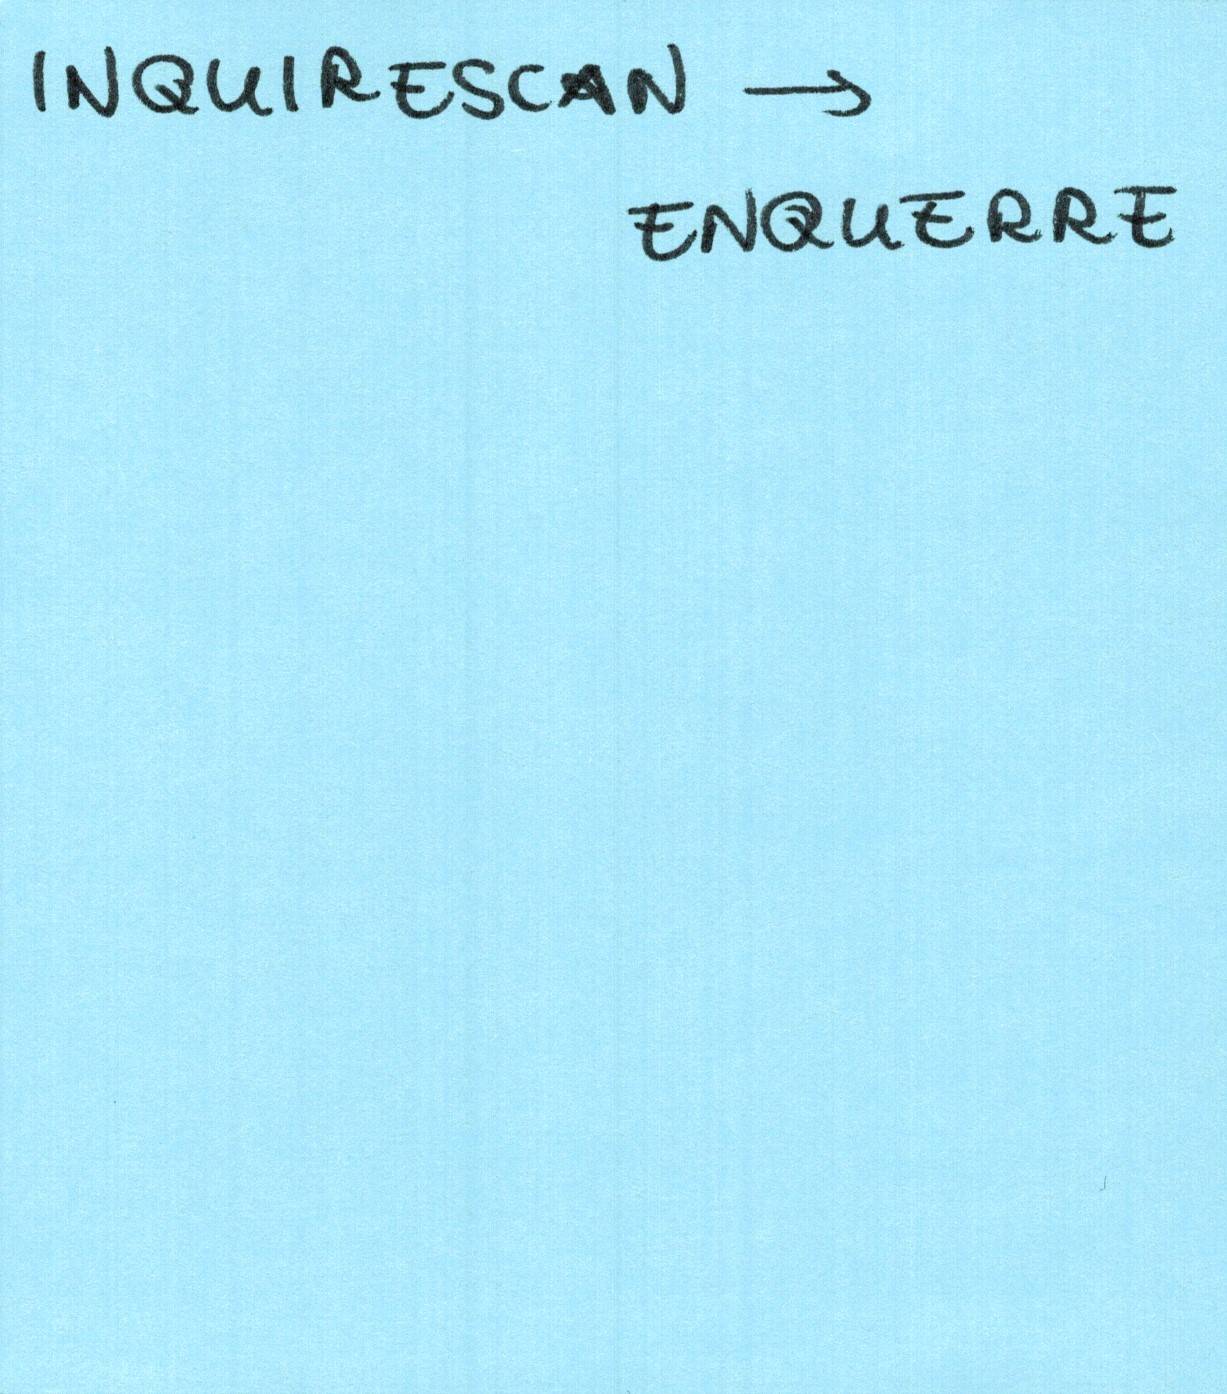 INQUIRESCAN →
ENQUERRE